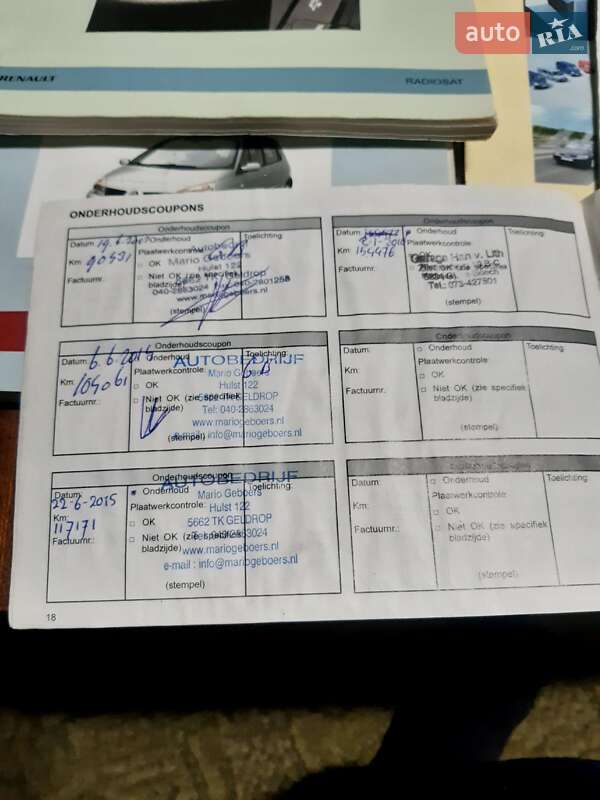 auto
RIA
.com
RENAULT
RADIOSAT
ONDERHOUDSCOUPONS
Onderhoudscoupon
Datum:
Onderhoud
Toelichting:
Km:
90531
Plaatwerkcontrole:
OK
Niet OK (zie specifiek
bladzijde)
Factuurnr.:
(stempel)
Autobedrijf
Mario Geboers
Hulst 122
040-2863024
www.mariogeboers.nl
Onderhoudscoupon
Datum:
Onderhoud
Toelichting:
Km:
154476
Plaatwerkcontrole:
OK
Factuurnr.:
(stempel)
Garage Han v. Lith
Tel.: 073-427501
Onderhoudscoupon
Datum:
Onderhoud
Toelichting:
Km:
105061
Plaatwerkcontrole:
OK
Niet OK (zie specifiek
bladzijde)
Factuurnr.:
(stempel)
AUTOBEDRIJF
Mario Geboers
Hulst 122
5662 TK GELDROP
Tel: 040-2863024
www.mariogeboers.nl
e-mail : info@mariogeboers.nl
Onderhoudscoupon
Datum:
Onderhoud
Toelichting:
Km:
Plaatwerkcontrole:
OK
Niet OK (zie specifiek
bladzijde)
Factuurnr.:
(stempel)
Onderhoudscoupon
Datum:
22-6-2015
Onderhoud
Toelichting:
Km:
117171
Plaatwerkcontrole:
OK
Niet OK (zie specifiek
bladzijde)
Factuurnr.:
(stempel)
AUTOBEDRIJF
Mario Geboers
Hulst 122
5662 TK GELDROP
Tel: 040-2863024
www.mariogeboers.nl
e-mail : info@mariogeboers.nl
Onderhoudscoupon
Datum:
Onderhoud
Toelichting:
Km:
Plaatwerkcontrole:
OK
Niet OK (zie specifiek
bladzijde)
Factuurnr.:
(stempel)
18